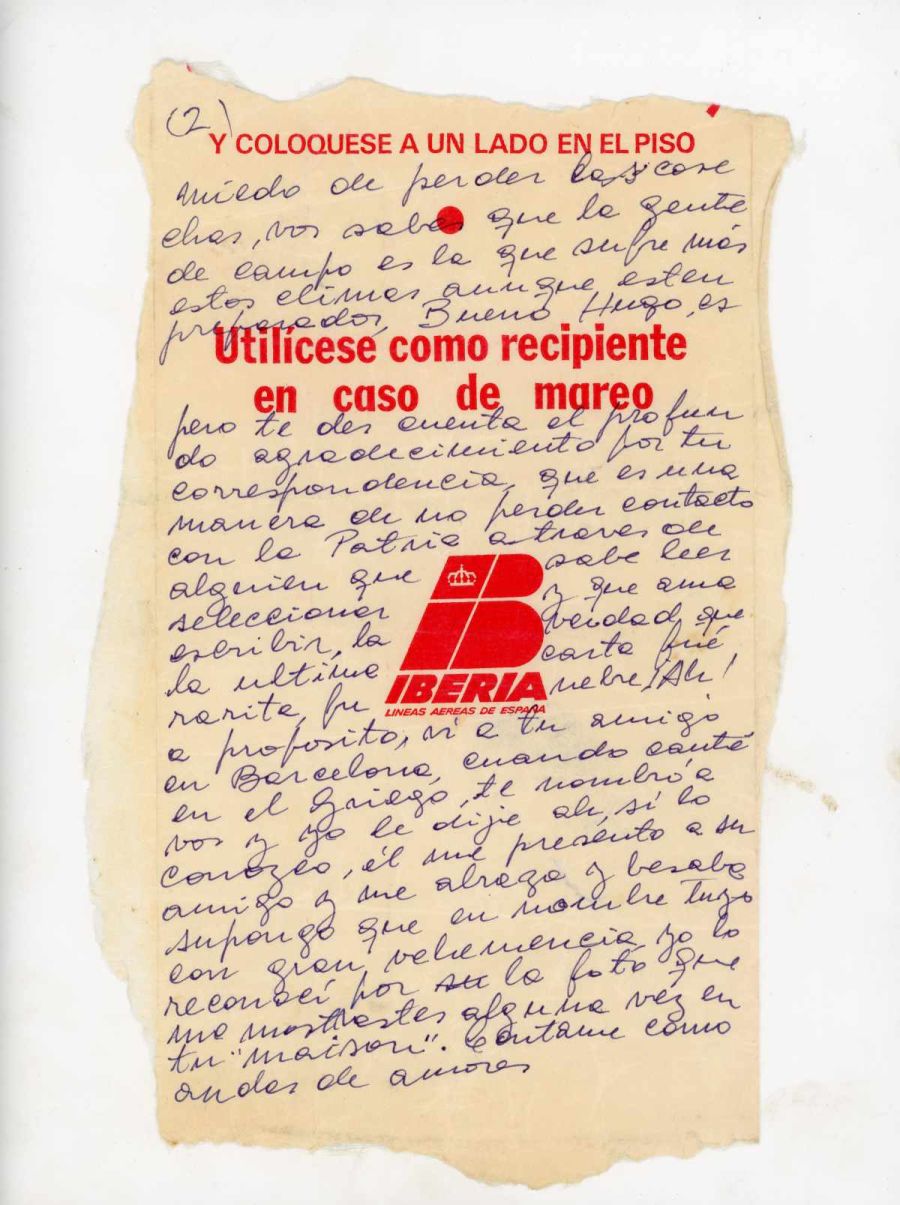 (2)
Y COLOQUESE A UN LADO EN EL PISO
miedo de perder las cose
chas, vos sabes que la gente
de campo es la que sufre más
estos climas aunque esten
preparados, Bueno Hugo, es
Utilícese como recipiente
en caso de mareo
pero te des cuenta el profun
do agradecimiento por tu
correspondencia, que es una
manera de no perder contacto
con la Patria a traves de
alguien que sabe leer
seleccionar y que ama
escribir, la verdad que
la ultima carta fué,
rarita, fu nebre! Ah!
IBERIA
LINEAS AEREAS DE ESPAÑA
a proposito, vi a tu amigo
en Barcelona, cuando canté
en el Griego, te nombró a
vos y yo le dije ah, sí lo
conozco, él me presento a su
amigo y me abraza y besaba
supongo que en nombre tuyo
con gran vehemencia, yo lo
reconocí por su la foto que
me mostrastes alguna vez en
tu "maison". Contame como
andas de amores